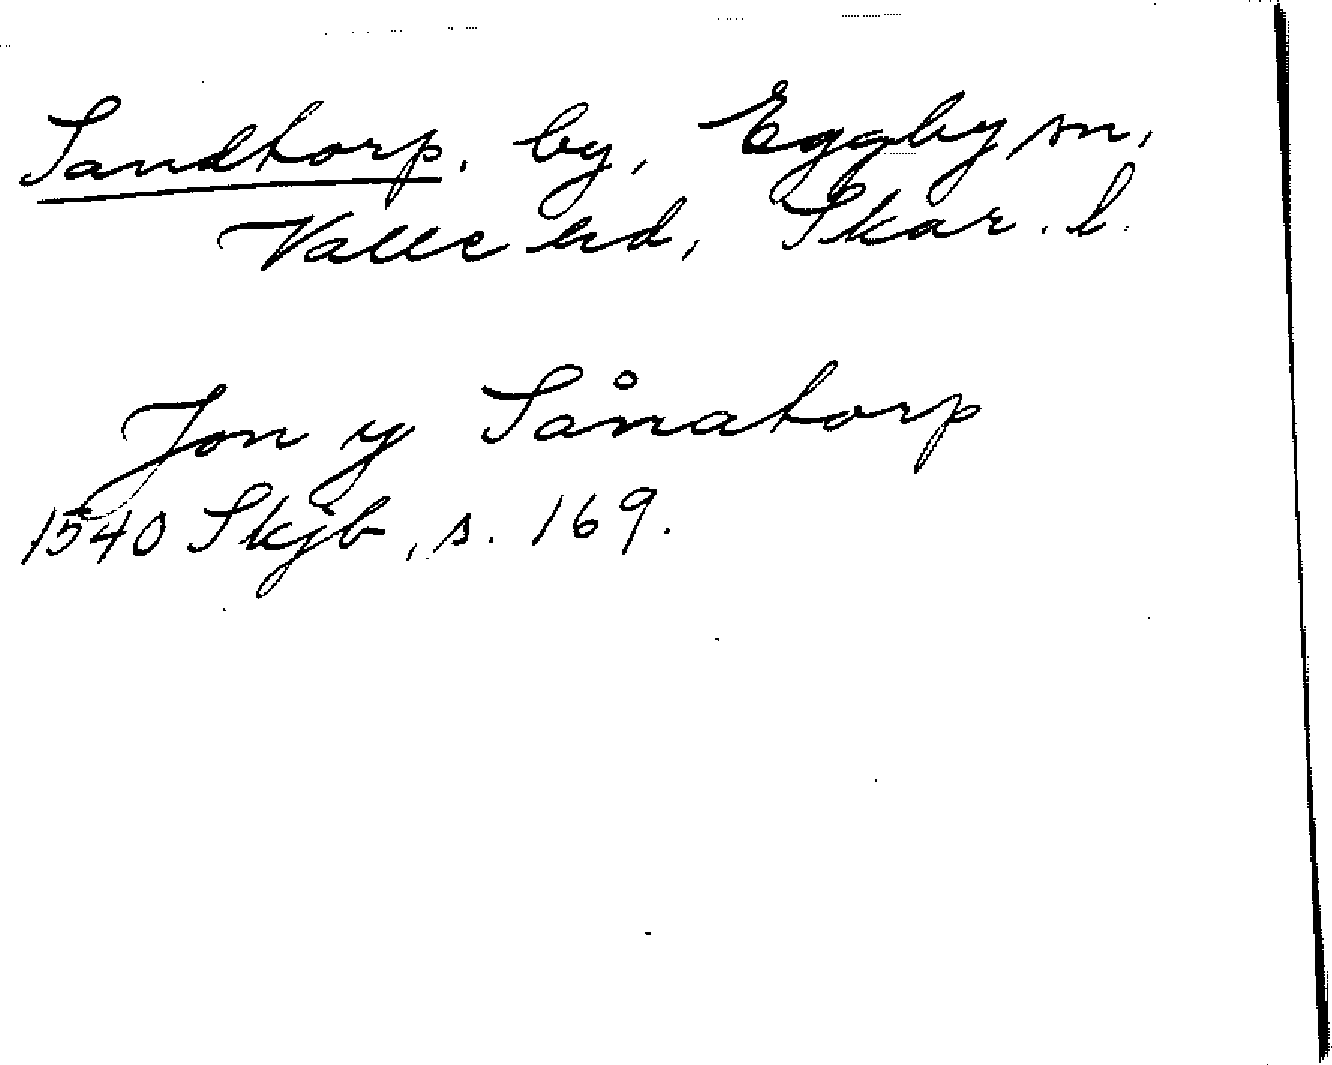 Sandtorp, by, Eggby sn,
Valle hd, Skar. l.
Jon y Sånatorp
1540 Skjb, s. 169.